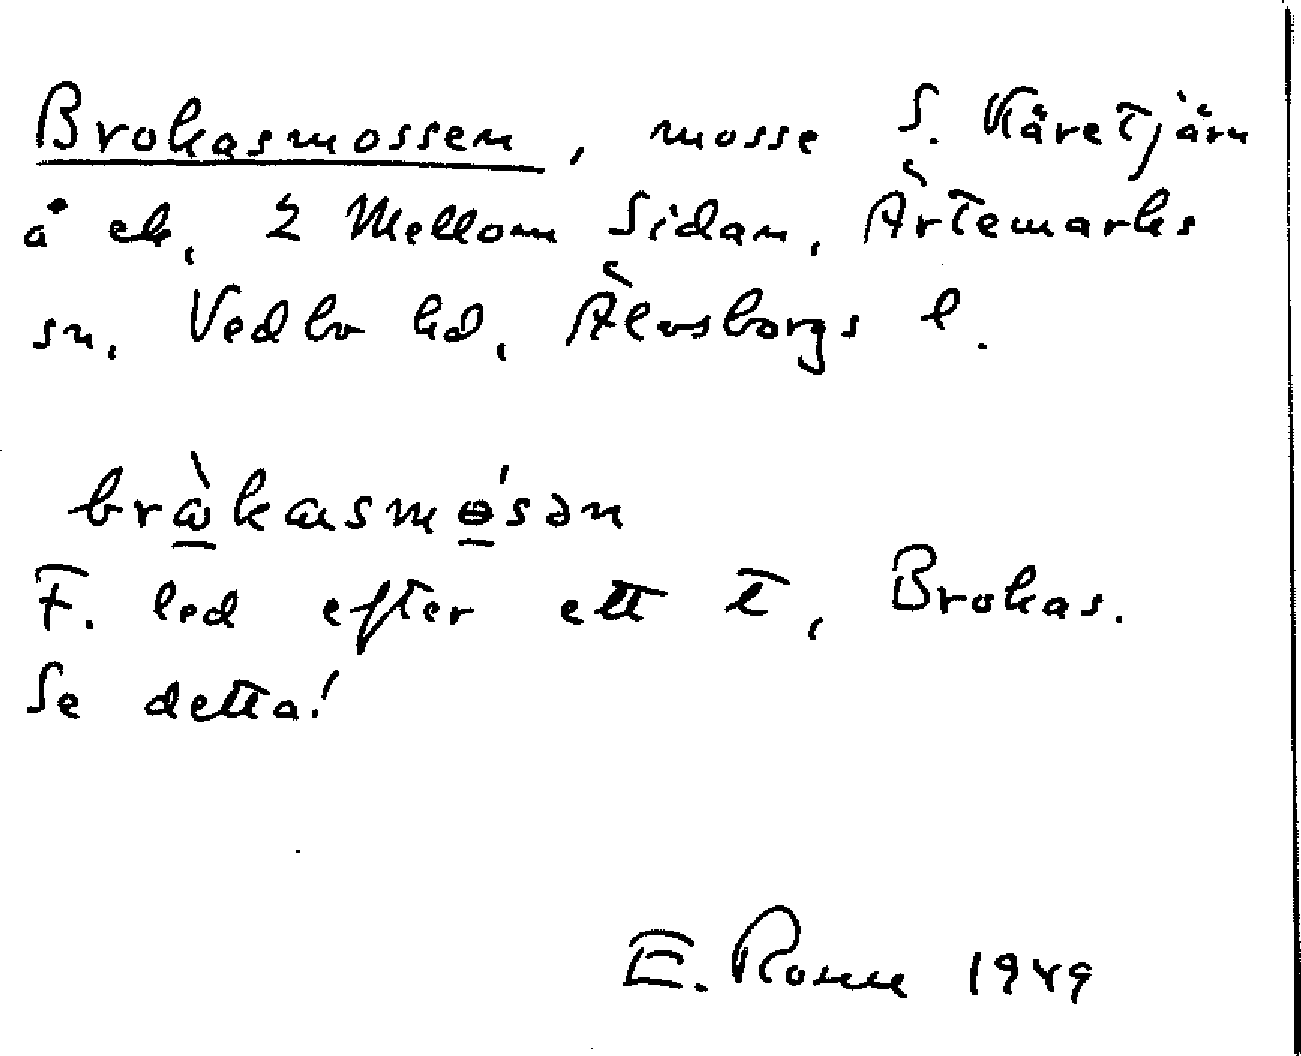 Brokasmossen, mosse S. Käretjärn
å ek, 2 Mellom Sidan, Ärtemarks
sn, Vedbo hd, Älvsborgs l.
bràkasmɵ́sən
F. led efter ett t, Brokas.
Se detta!
E. Rosell 1949